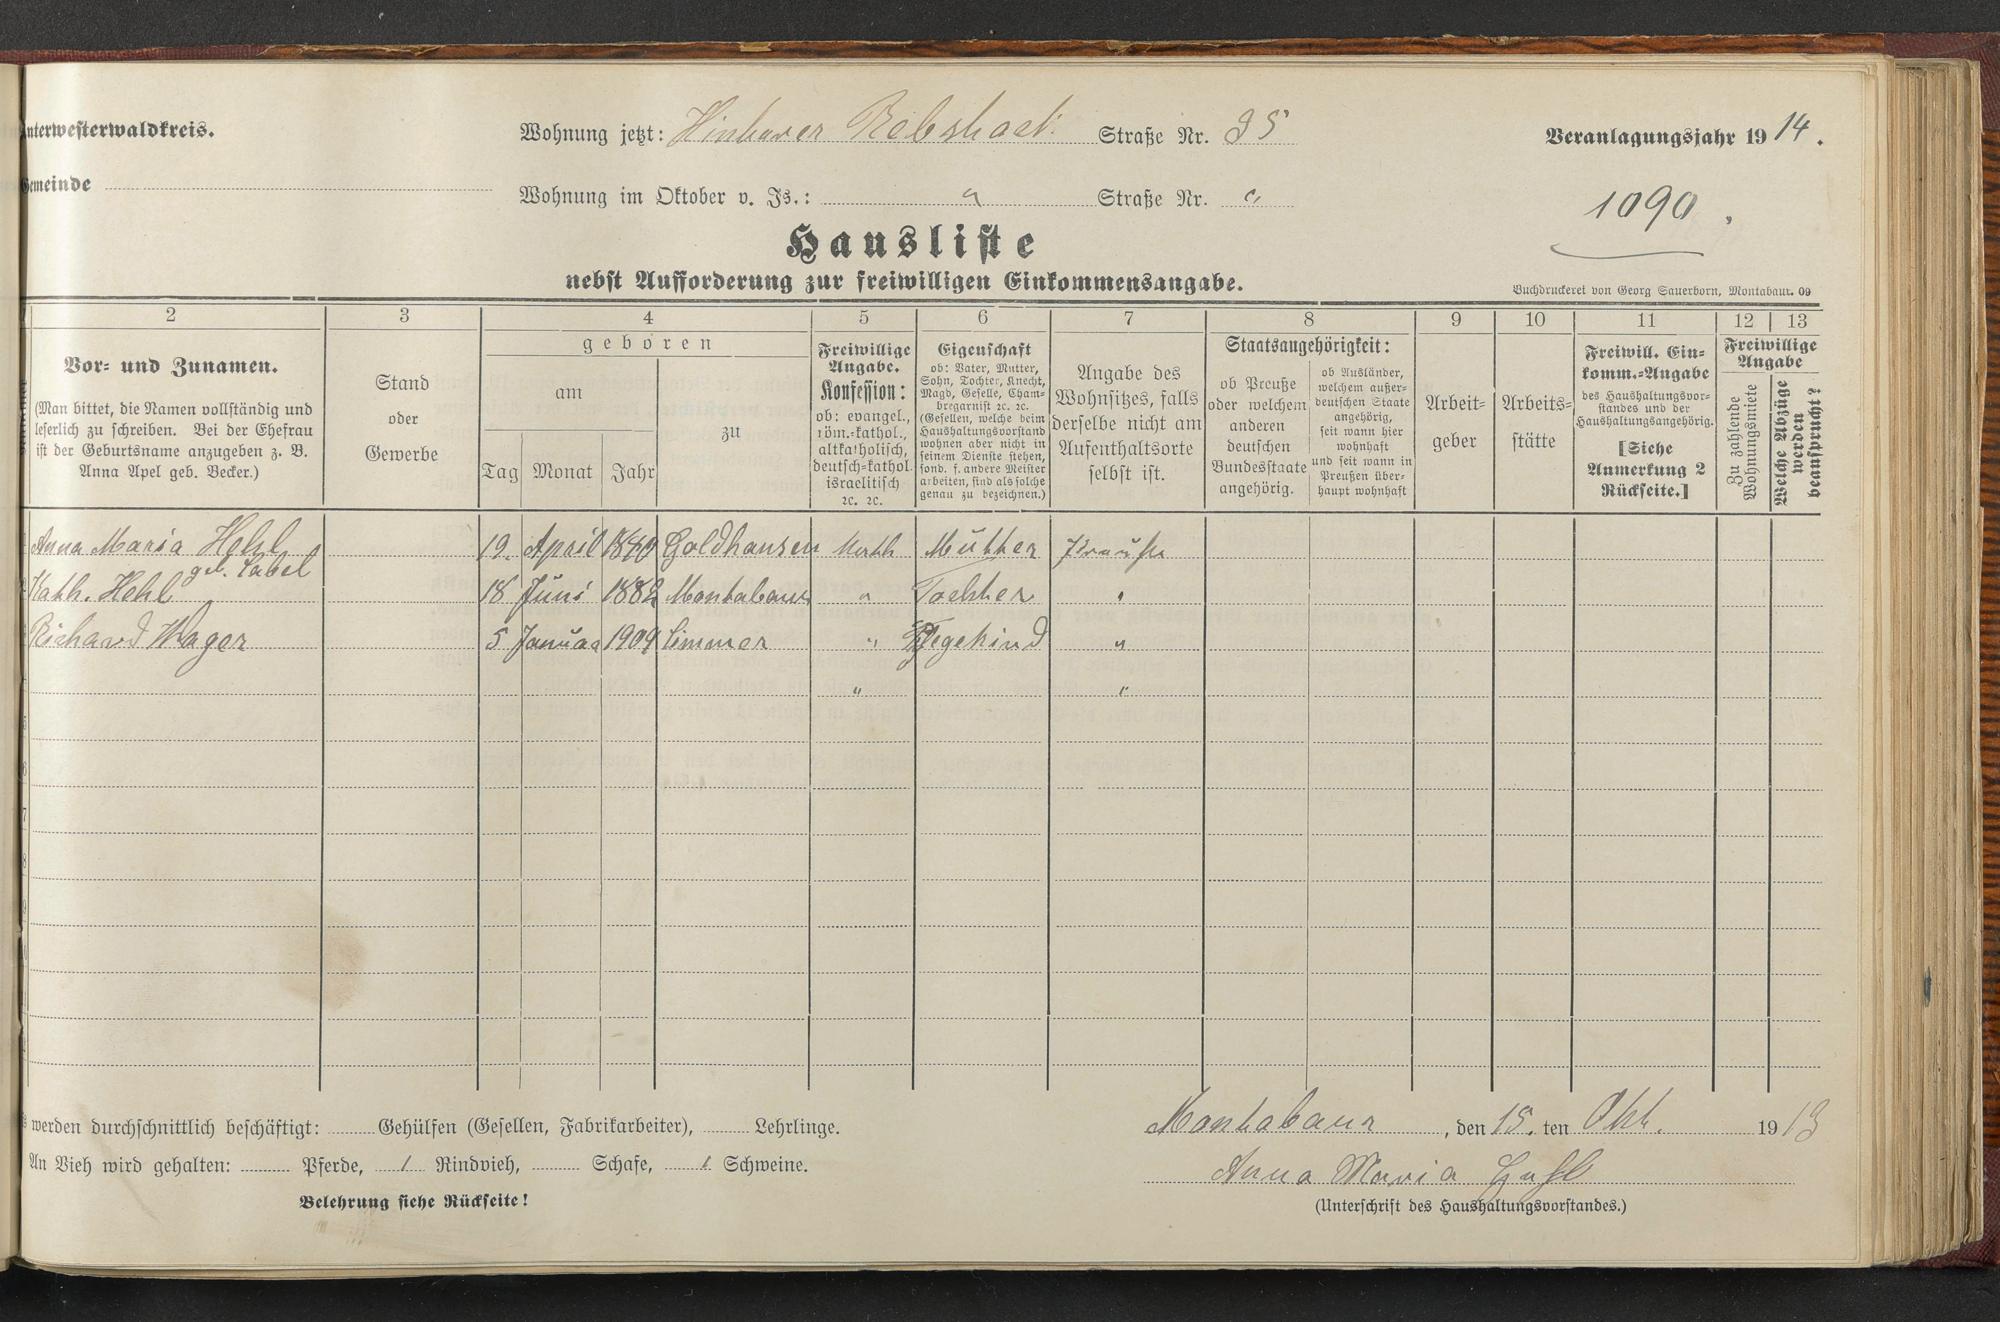 nterwesterwaldkreis.
Wohnung jetzt: Hinterer Rebstock Straße Nr. 35
Veranlagungsjahr 1914.
Gemeinde
Wohnung im Oktober v. Js.: " Straße Nr. "
1090
Hausliste
nebst Aufforderung zur freiwilligen Einkommensangabe.
Buchdruckerei von Georg Sauerborn, Montabaur. 09
2 3 4 5 6 7 8 9 10 11 12 13
Vor- und Zunamen.
(Man bittet, die Namen vollständig und
leserlich zu schreiben. Bei der Ehefrau
ist der Geburtsname anzugeben z. B.
Anna Apel geb. Becker.)
Stand
oder
Gewerbe
geboren
am
zu
Tag Monat Jahr
Freiwillige
Angabe.
Konfession:
ob: evangel.,
röm.-kathol.,
altkatholisch,
deutsch-kathol.
israelitisch
2c. 2c.
Eigenschaft
ob: Vater, Mutter,
Sohn, Tochter, Knecht,
Magd, Geselle, Cham-
bregarnist 2c. 2c.
(Gesellen, welche beim
Haushaltungsvorstand
wohnen aber nicht in
seinem Dienste stehen,
sond. f. andere Meister
arbeiten, sind als solche
genau zu bezeichnen.)
Angabe des
Wohnsitzes, falls
derselbe nicht am
Aufenthaltsorte
selbst ist.
Staatsangehörigkeit:
ob Preuße
oder welchem
anderen
deutschen
Bundesstaate
angehörig.
ob Ausländer,
welchem außer-
deutschen Staate
angehörig,
seit wann hier
wohnhaft
und seit wann in
Preußen über-
haupt wohnhaft
Arbeit-
geber
Arbeits-
stätte
Freiwill. Ein-
komm.-Angabe
des Haushaltungsvor-
standes und der
Haushaltungsangehörig.
[Siehe
Anmerkung 2
Rückseite.]
Freiwillige
Angabe
Zu zahlende
Wohnungsmiete
Welche Abzüge
werden
beansprucht?
Anna Maria Hehl 19. April 1849 Goldhausen Kath Mutter
geb. Label
Kath. Hehl 18 Juni 1882 Montabaur " Tochter "
Richard Wager 5 Januar 1909 Limmer " Pflegekind "
" "
werden durchschnittlich beschäftigt: Gehülfen (Gesellen, Fabrikarbeiter), Lehrlinge.
Montabaur, den 15. ten Okt. 1913
An Vieh wird gehalten: Pferde, 1 Rindvieh, Schafe, 1 Schweine.
Anna Maria Hehl
Belehrung siehe Rückseite!
(Unterschrift des Haushaltungsvorstandes.)